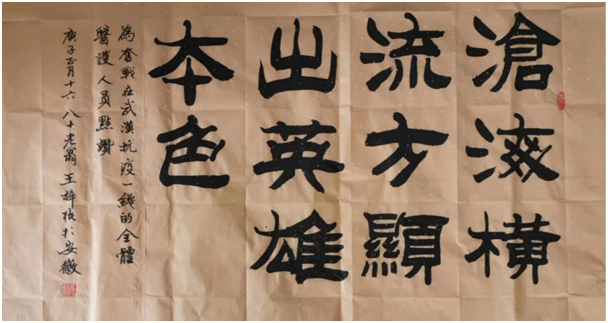 滄海橫
流方顯
出英雄
本色
為奮戰在武漢抗疫一綫的全體
醫護人員點讚
庚子正月十六八十老翁王梓根於安徽